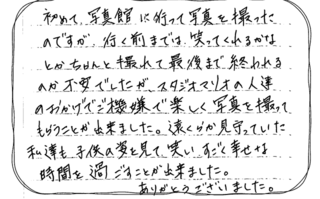 初めて、写真館に行って写真を撮った
のですが、行く前までは、笑ってくれるかな
とかちゃんと撮れて最後まで終われる
のか不安でしたが、スタジオマリオの人達
のおかげでご機嫌で楽しく写真を撮って
もらうことが出来ました。遠くから見守っていた
私達も子供の姿を見て、笑い、すごく幸せな
時間を過ごすことが出来ました。
ありがとうございました。